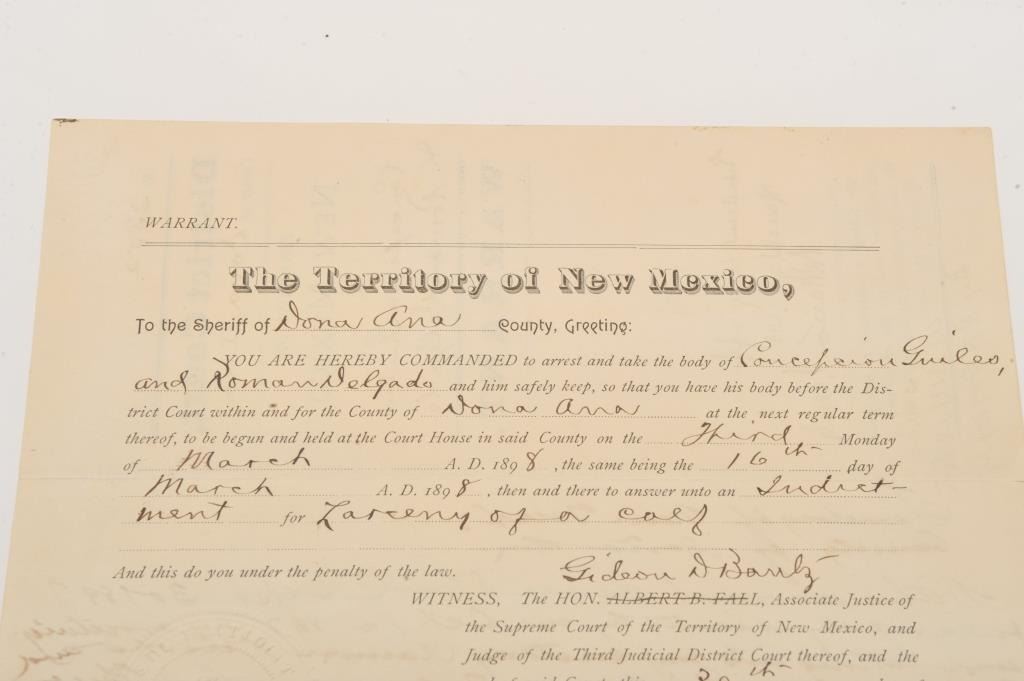 WARRANT.
The Territory of New Mexico,
To the Sheriff of Dona Ana County, Greeting:
YOU ARE HEREBY COMMANDED to arrest and take the body of Concepcion Guiles,
and Roman Delgado and him safely keep, so that you have his body before the Dis-
trict Court within and for the County of Dona Ana at the next regular term
thereof, to be begun and held at the Court House in said County on the Third Monday
of March A. D. 1898, the same being the 16th day of
March A. D. 1898, then and there to answer unto an Indict-
ment for Larceny of a calf
And this do you under the penalty of the law.
Gideon D Bantz
WITNESS, The HON. ALBERT B. FALL, Associate Justice of
the Supreme Court of the Territory of New Mexico, and
Judge of the Third Judicial District Court thereof, and the